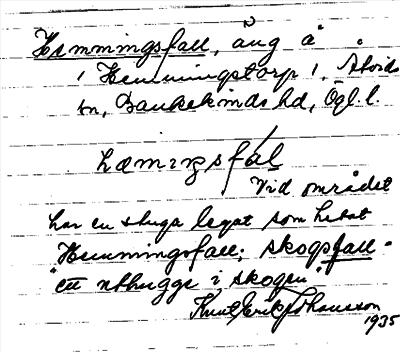 Hemmingsfall, äng å
i Hemmingstorp 1, Åtvids
sn, Bankekinds hd, Ögl. l.
hæmıŋsfal
Vid området
har en stuga legat som hetat
Hemmingsfall; skogsfall =
"ett uthugge i skogen".
Knut Erik Johansson
1935